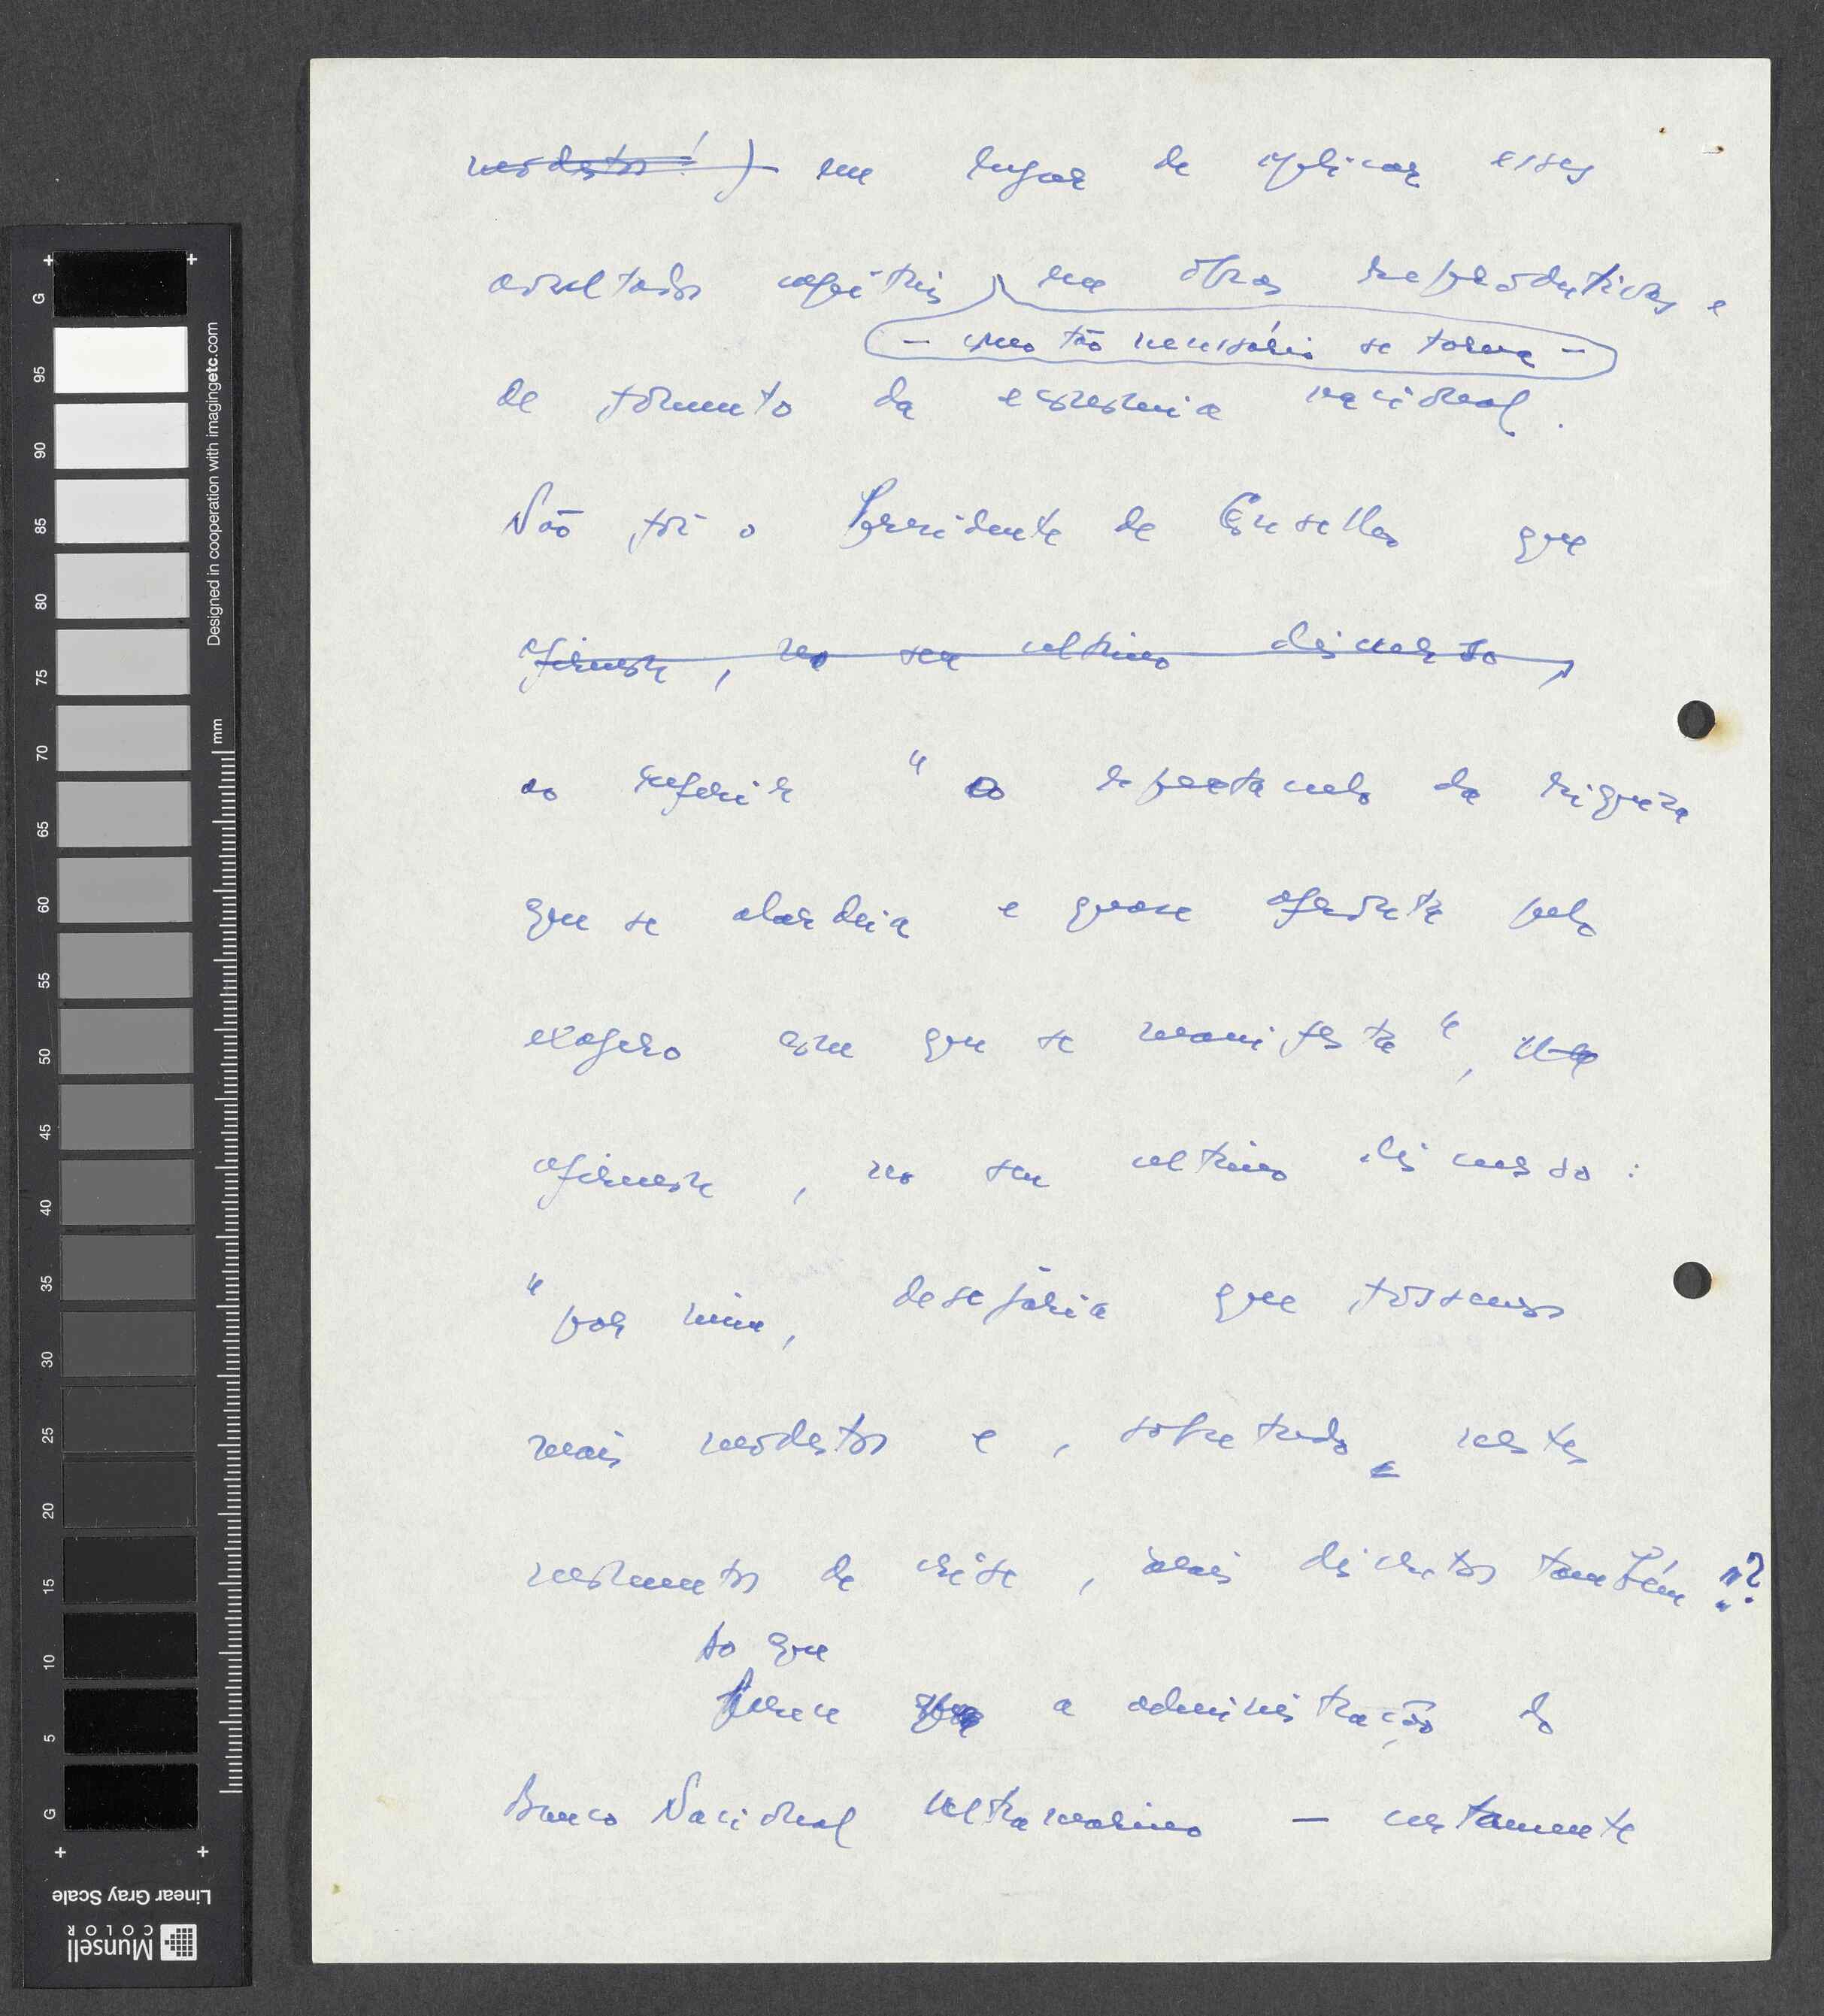 modestos!) em lugar de aplicar esses
avultados capitais em obras reprodutivas e
— como tão necessário se torna —
de fomento da economia nacional.
Não foi o Presidente do Conselho que
afirmou, no seu ultimo discurso,
ao referir "o espectaculo da riqueza
que se alardeia e quase afronta pelo
exagero com que se manifesta",
afirmou, no seu ultimo discurso:
"por mim, desejaria que fossemos
mais modestos e, sobretudo nestes
momentos de crise, mais discretos também"?
so que
Parece a administração do
Banco Nacional Ultramarino — certamente
G
95
90
85
80
75
70
65
60
55
50
45
40
35
30
25
20
15
10
5
G
mm
Designed in cooperation with imagingetc.com
Linear Gray Scale
Munsell
COLOR